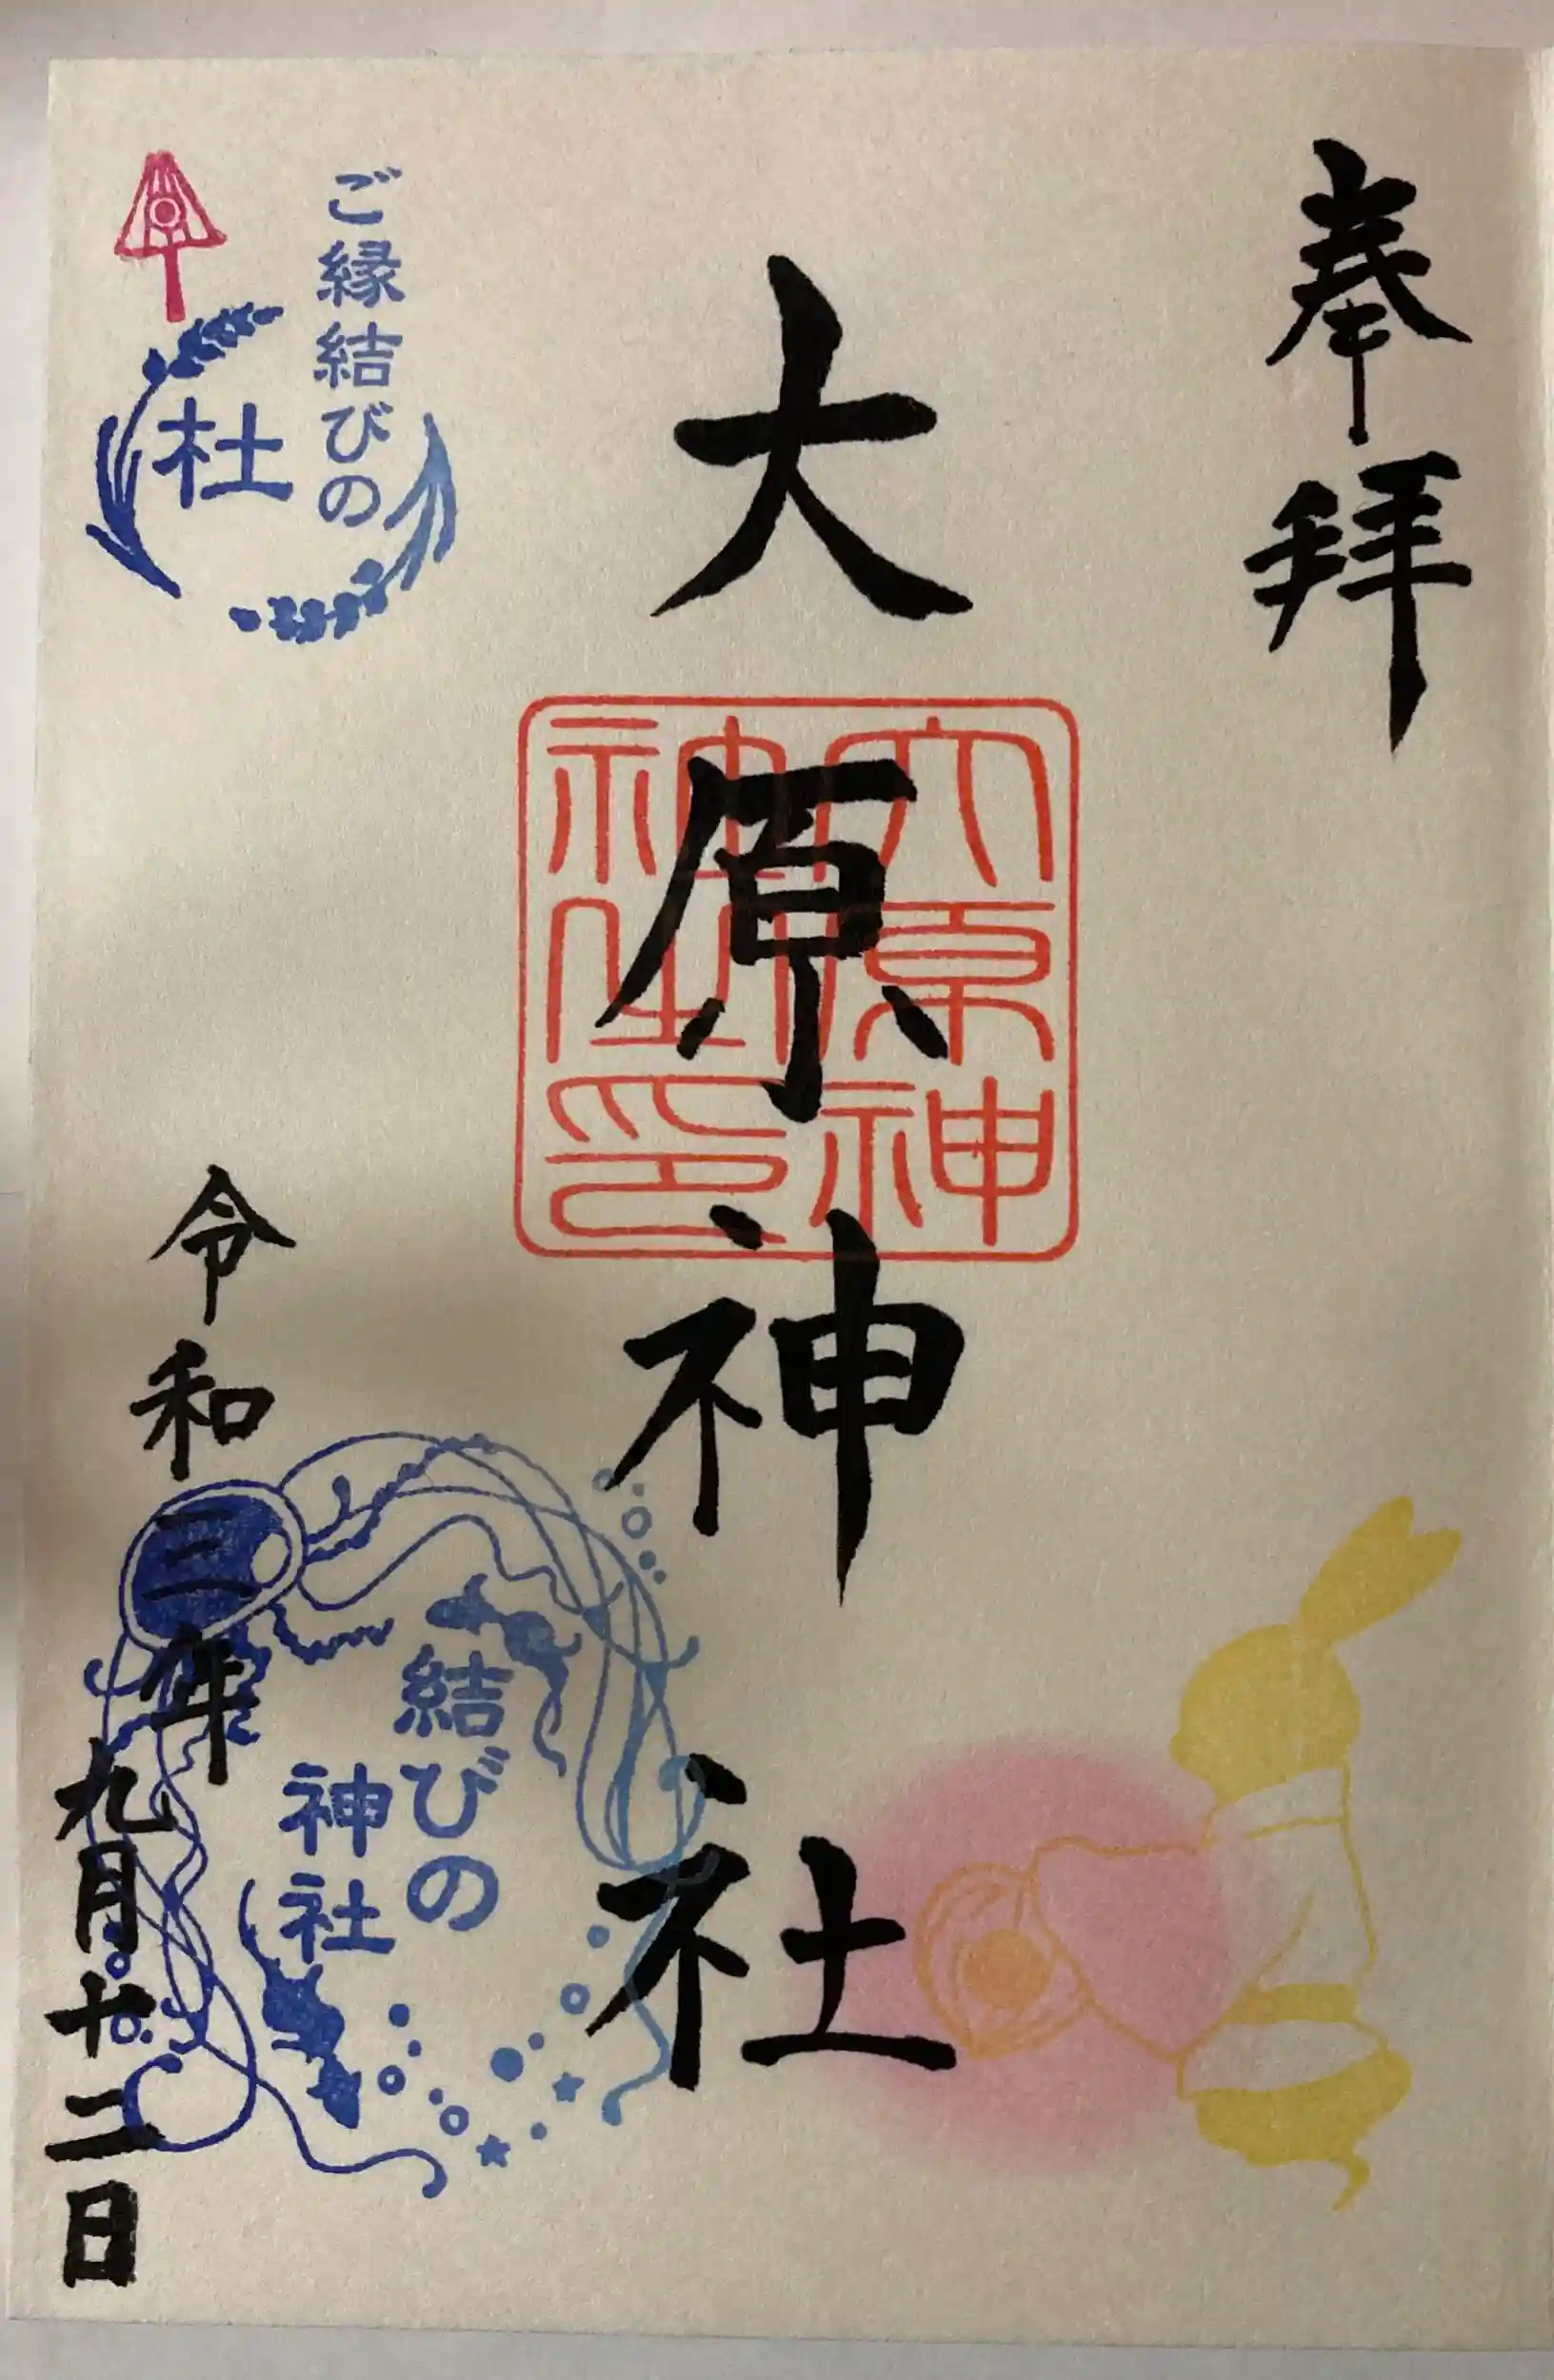 奉拝
大原神社
大原神
社印
ご縁結びの
杜
結びの
神社
令和三年
九月十二日